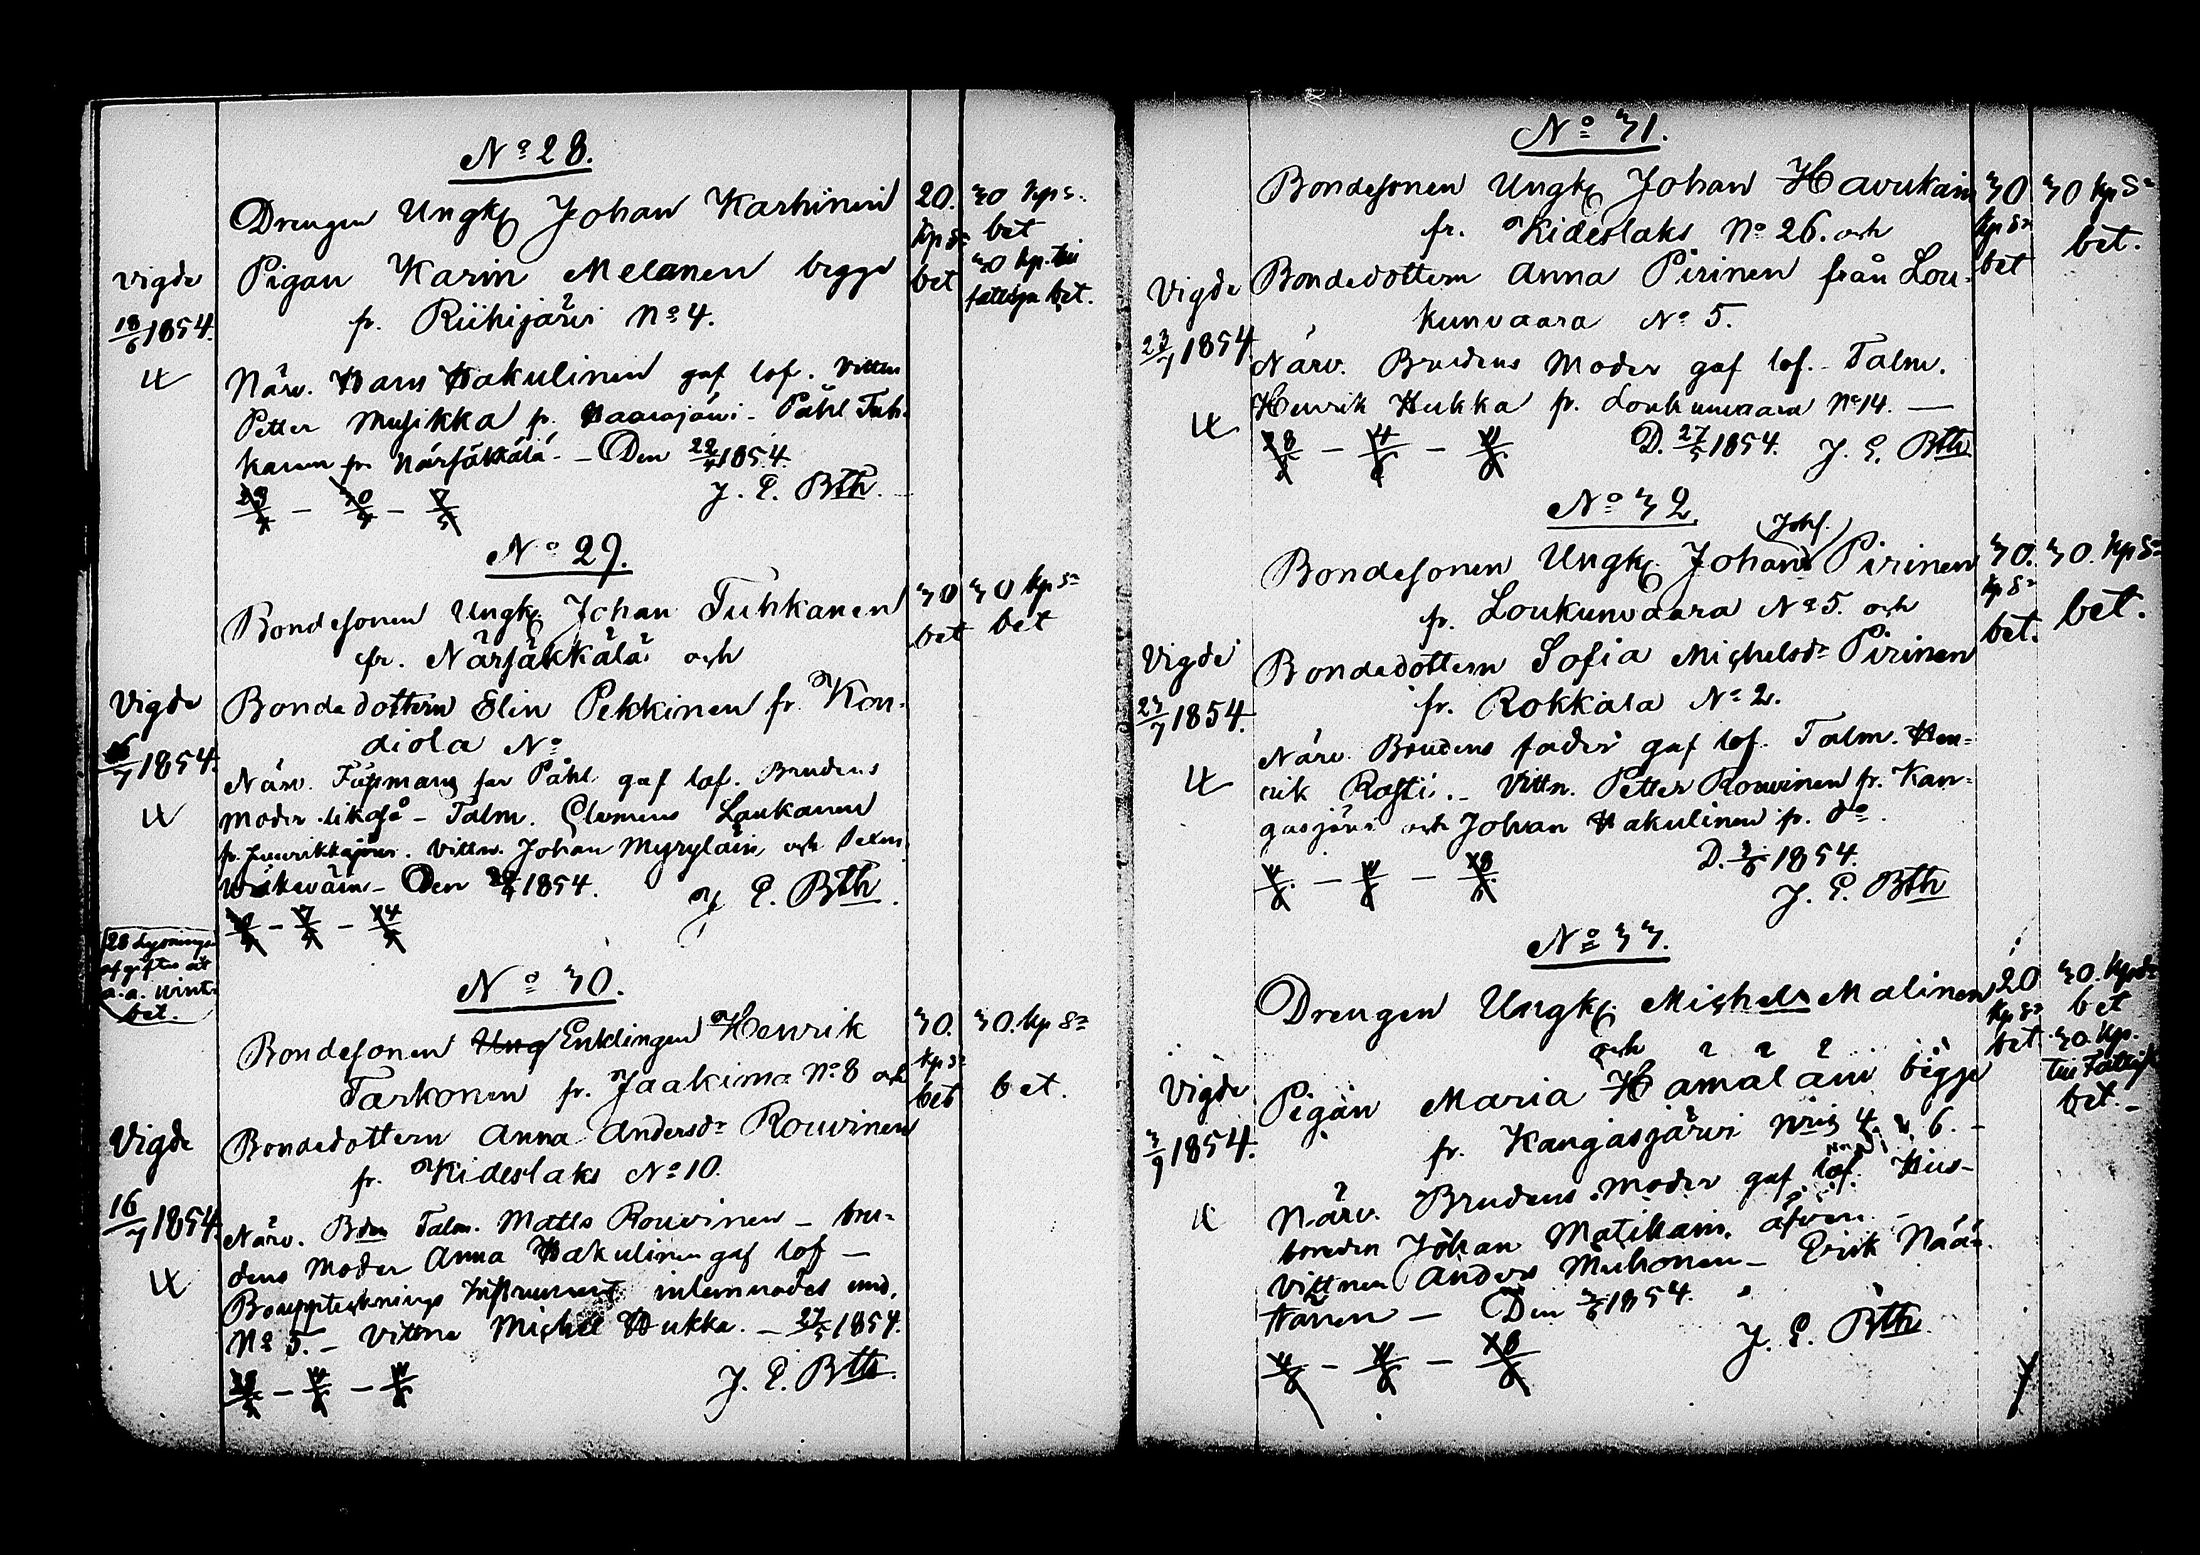 No 28.
Drengen Ungk Johan Karhinen
Pigan Karin Melanen begge
fr. Riihijärvi No 4.
Närv. Hans Hakulinen gaf lof. Vittn
Petter Musikka fr. Haarajärvi - Påhl Tuh-
kanen fr. Närsäkkälä - Den 22/4 1854.
J. E. Bth.
Vigde
18/6 1854.
20. kp Sr bet
30 kp S. bet
30 kp. till fattige bet.
No 29.
Bondesonen Ungk Johan Tuhkanen
fr. Närsäkkälä och
Bondedottern Elin Pekkinen fr. Kon-
diola No
Närv. Fästmans far Påhl gaf lof. Brudens
moder likaså - Talm. Clemens Laukanen
Vittn. Johan Myryläin och
Den 1854. J. E. Bth.
Vigde
16/7 1854.
30 bet
30 kp Sr bet
28 Lysnings
afgifter
bet.
No 30.
Bondesonen Ung Enklingen Henrik
Tarkonen fr. Jaakima No 8 och
Bondedottern Anna Andersdr Rouvinen
fr. Kideslaks No 10.
Närv. Bdn Talm. Matts Rouvinen - bru-
dens Moder Anna Hakulinen gaf lof -
Bouppteknings Instrument inlemnades und.
No 5. - Vittne Michel Hukka. - 27/5 1854.
J. E. Bth.
Vigde
16/7 1854.
30. kp Sr bet
30. kp Sr bet.
No 31.
Bondesonen Ungk Johan Havukain
fr. Kideslaks No 26. och
Bondedottern Anna Pirinen från Lou-
kunvaara No 5.
Närv. Brudens Moder gaf lof. - Talm.
Henrik Hukka fr. Loukunvaara No 14. -
D. 27/5 1854. J. E. Bth
Vigde
23/7 1854
30 kp Sr bet
30 kp Sr bet.
No 32.
Johs.
Bondesonen Ungk. Johan Pirinen
fr. Loukunvaara No 5. och
Bondedottern Sofia Michelsdr Pirinen
fr. Rokkala No 2.
Närv. Brudens fader gaf lof. Talm. Hen-
rik Rasti. - Vittn. Petter Rouvinen fr. Kan-
gasjärvi och Johan Hakulinen fr. do.
D. 3/6 1854.
J. E. Bth
Vigde
23/7 1854.
30. kp Sr bet.
30. kp Sr bet.
No 33.
Drengen Ungk. Michel Malinen
och
Pigan Maria Hämäläin begge
fr. Kangasjärvi Nris 4. & 6.
Närv. Brudens Moder gaf lof.
Johan Matikain. äfven -
Vittnen Anders Muhonen - Erik Nää-
tänen - Den 3/6 1854.
J. E. Bth.
Vigde
3/9 1854.
20 kp Sr bet
30. kp Sr bet
30. kp. till Fattige bet. -